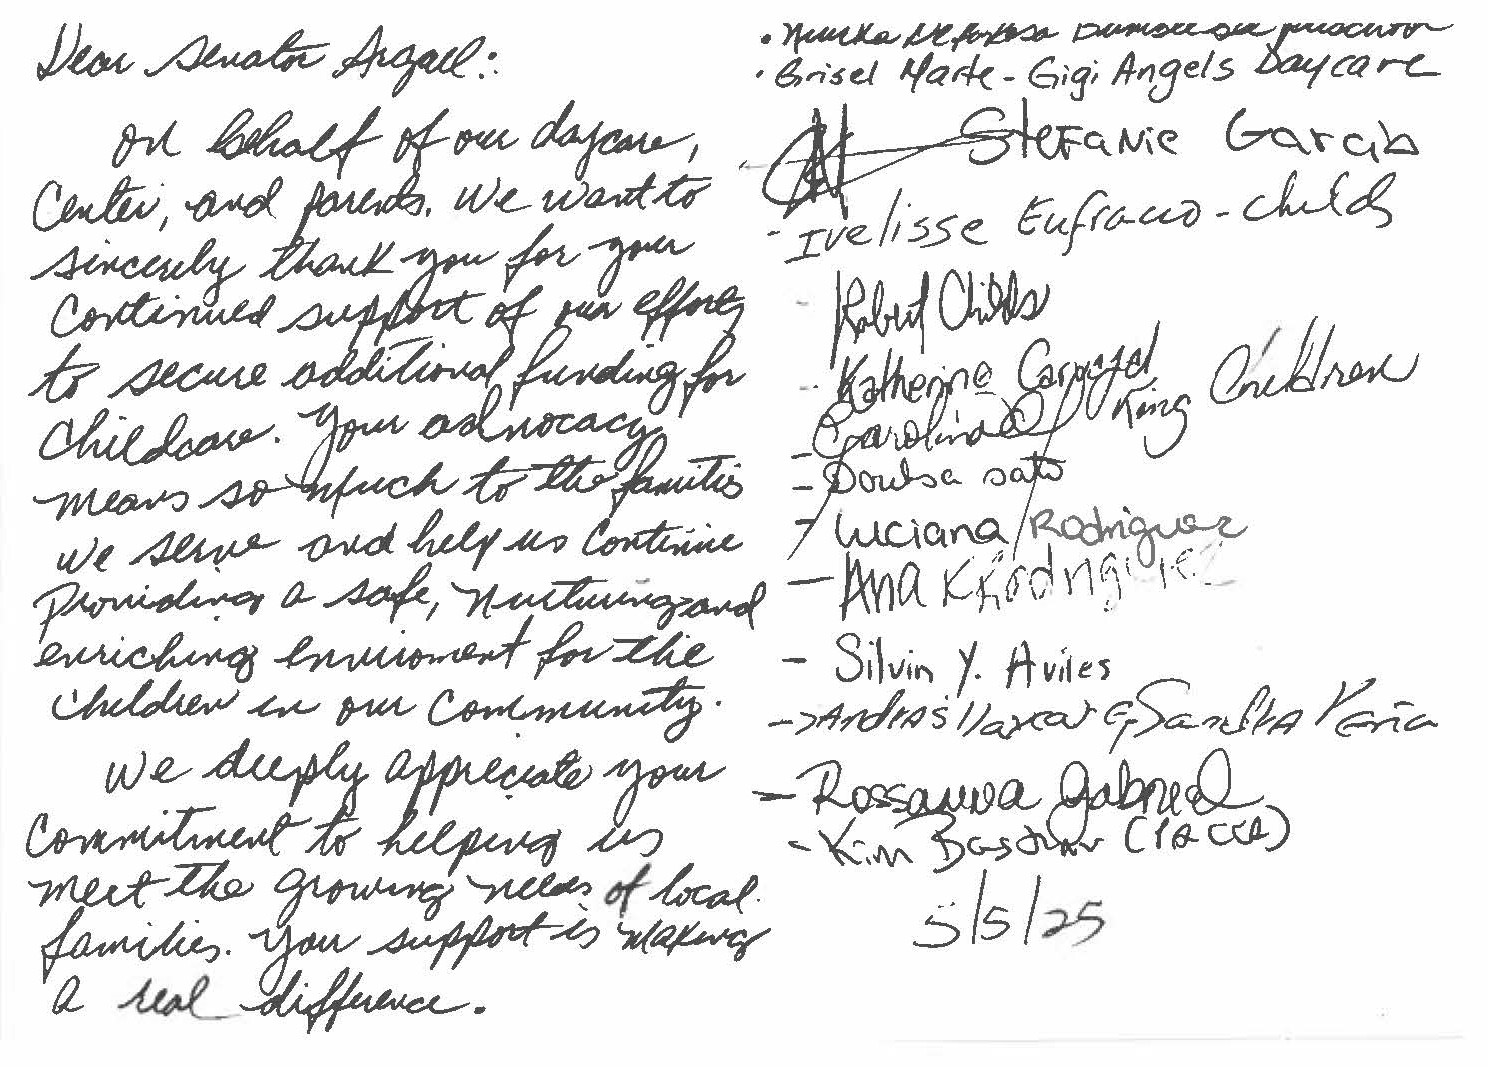 Dear Senator Argall:
On behalf of our daycare,
Center, and parents. We want to
sincerely thank you for your
Continued support of our efforts
to secure additional funding for
Childcare. Your advocacy
means so much to the families
we serve and help us Continue
Providing a safe, nurturing and
enriching enviroment for the
Children in our Community.
We deeply appreciate your
Commitment to helping us
meet the growing needs of local
families. Your support is making
a real difference.
Grisel Marte - Gigi Angels Daycare
Stefanie Garcia
Ivelisse Eufracio - Childs
Robert Childs
Katherine
Carolina King Children
Luciana Rodriguez
Ana K Rodriguez
- Silvin Y. Aviles
- Rossanna Gabriel
- Kim
5/5/25